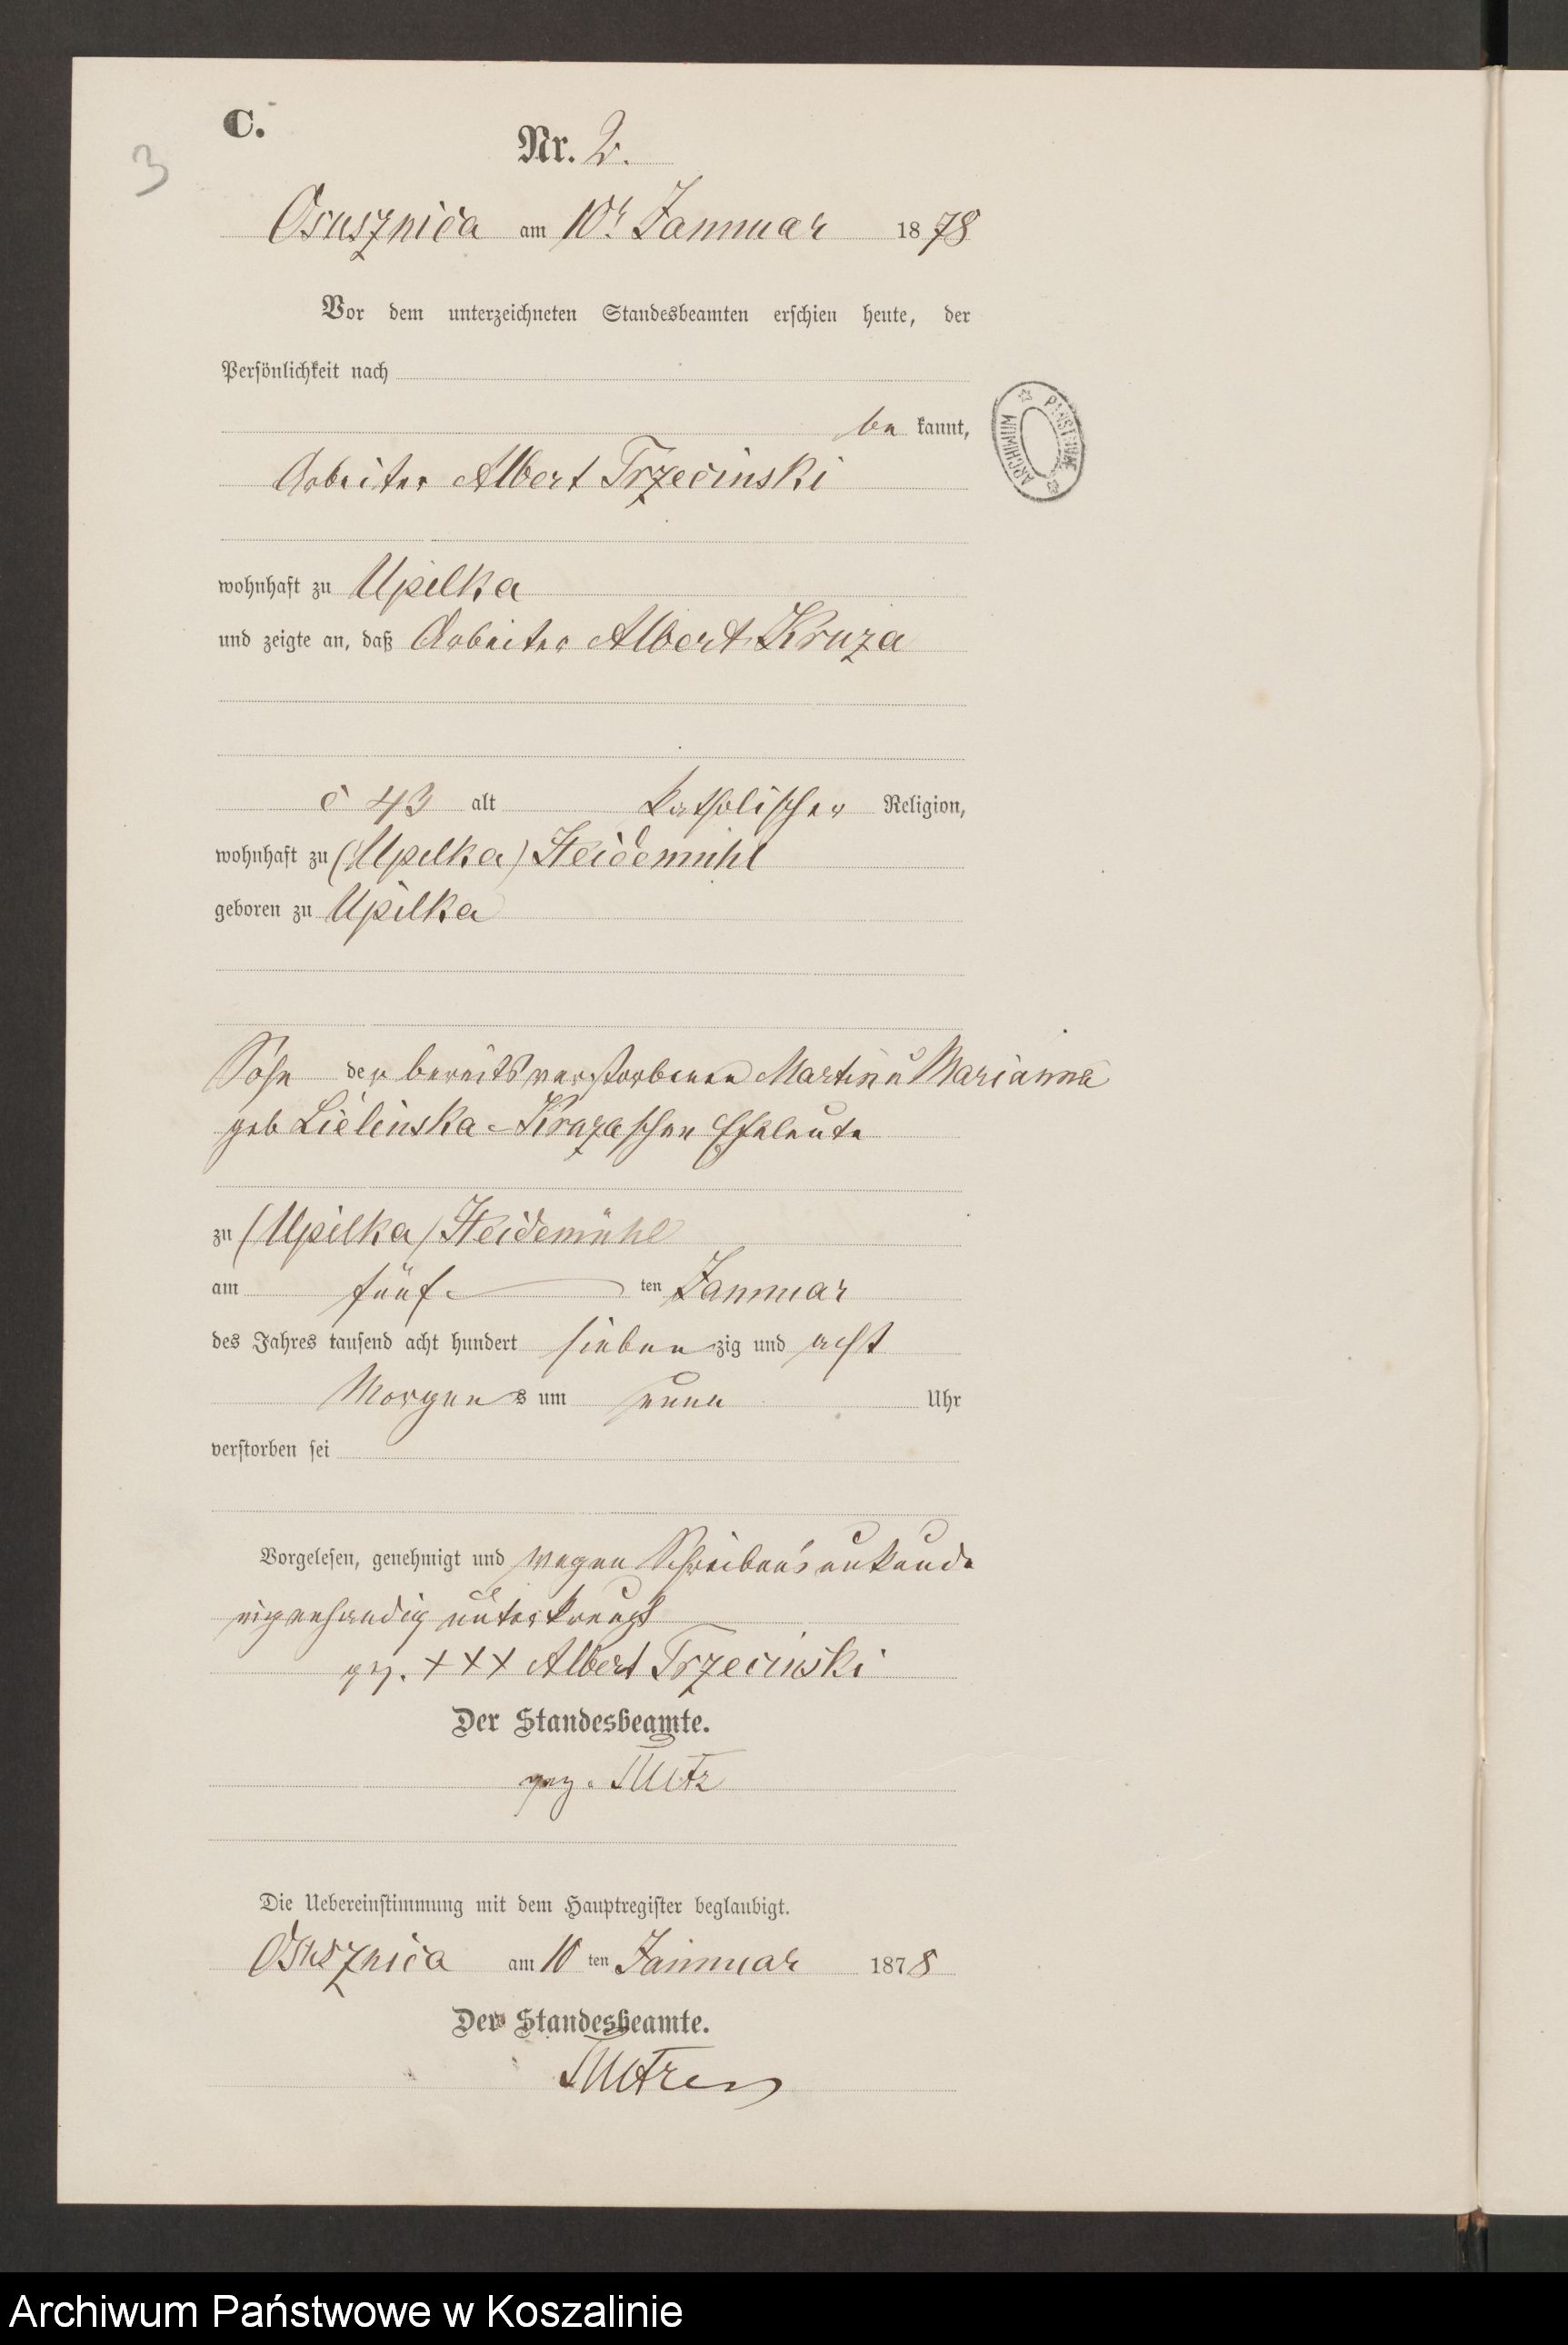 C.
3
Nr. 2.
Osusznica am 10t Januar 1878
Vor dem unterzeichneten Standesbeamten erschien heute, der
Persönlichkeit nach
be kannt,
Arbeiter Albert Trzecinski
wohnhaft zu Upilka
und zeigte an, daß Arbeiter Albert Kruza
43 alt katholischer Religion,
wohnhaft zu (Upilka) Heidemühl
geboren zu Upilka
Sohn der bereits verstorbenen Martin u Marianna
geb Lielinska-Kruzaschen Eheleute
zu (Upilka) Heidemühl
am fünf ten Januar
des Jahres tausend acht hundert siebenzig und acht
Morgens um neun Uhr
verstorben sei
Vorgelesen, genehmigt und wegen Schreibens unkunde
eigenhändig unterkreuzt
gez. +++ Albert Trzecinski
Der Standesbeamte.
gez.
Die Uebereinstimmung mit dem Hauptregister beglaubigt.
Osusznica am 10 ten Januar 1878
Der Standesbeamte.
ARCHIWUM PAŃSTWOWE
Archiwum Państwowe w Koszalinie